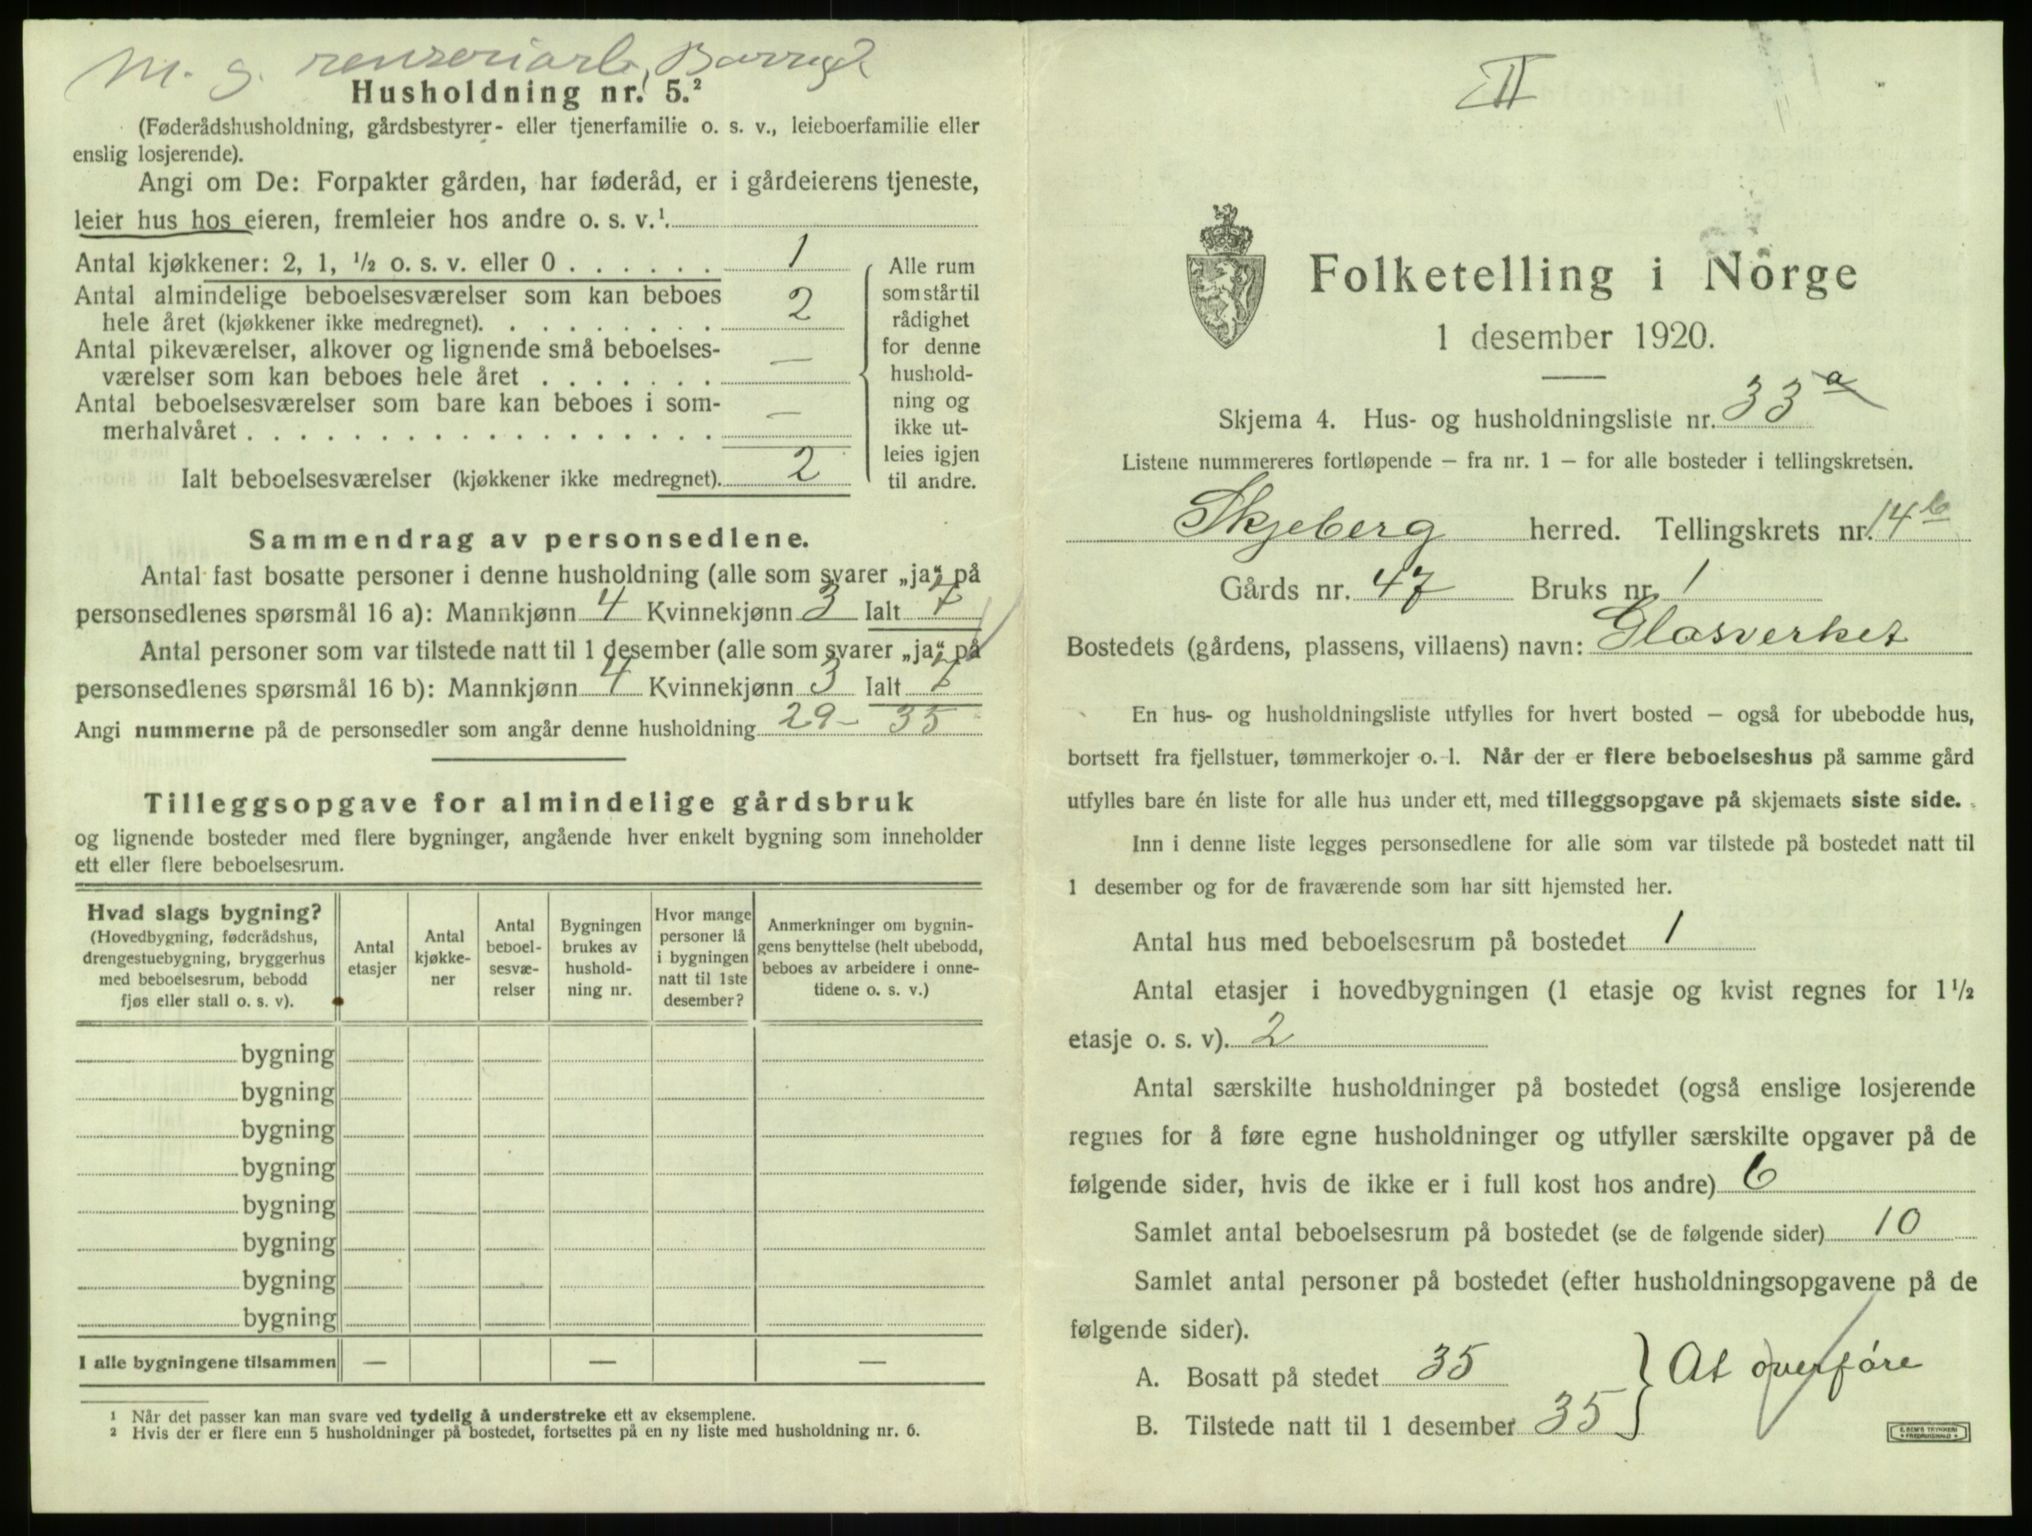 M. g. renseriarb. Borreg.
Husholdning nr. 5.²
(Føderådshusholdning, gårdsbestyrer- eller tjenerfamilie o. s. v., leieboerfamilie eller
enslig losjerende).
Angi om De: Forpakter gården, har føderåd, er i gårdeierens tjeneste,
leier hus hos eieren, fremleier hos andre o. s. v.¹
Antal kjøkkener: 2, 1, ½ o. s. v. eller 0 . . . . . . 1
Antal almindelige beboelsesværelser som kan beboes
hele året (kjøkkener ikke medregnet). . . . . . . . . 2
Antal pikeværelser, alkover og lignende små beboelses-
værelser som kan beboes hele året . . . . . . . —
Antal beboelsesværelser som bare kan beboes i som-
merhalvåret . . . . . . . . . . . . . . . . . . —
Ialt beboelsesværelser (kjøkkener ikke medregnet). 2
Alle rum
som står til
rådighet
for denne
hushold-
ning og
ikke ut-
leies igjen
til andre.
Sammendrag av personsedlene.
Antal fast bosatte personer i denne husholdning (alle som svarer „ja“ på
personsedlenes spørsmål 16 a): Mannkjønn 4 Kvinnekjønn 3 Ialt 7
Antal personer som var tilstede natt til 1 desember (alle som svarer „ja“ på
personsedlenes spørsmål 16 b): Mannkjønn 4 Kvinnekjønn 3 Ialt 7
Angi nummerne på de personsedler som angår denne husholdning 29 - 35
Tilleggsopgave for almindelige gårdsbruk
og lignende bosteder med flere bygninger, angående hver enkelt bygning som inneholder
ett eller flere beboelsesrum.
Hvad slags bygning?
(Hovedbygning, føderådshus,
drengestuebygning, bryggerhus
med beboelsesrum, bebodd
fjøs eller stall o. s. v).
Antal
etasjer
Antal
kjøkke-
ner
Antal
beboel-
sesvæ-
relser
Bygningen
brukes av
hushold-
ning nr.
Hvor mange
personer lå
i bygningen
natt til 1ste
desember?
Anmerkninger om bygnin-
gens benyttelse (helt ubebodd,
beboes av arbeidere i onne-
tidene o. s. v.)
bygning
bygning
bygning
bygning
bygning
bygning
bygning
bygning
I alle bygningene tilsammen — — —
¹ Når det passer kan man svare ved tydelig å understreke ett av eksemplene.
² Hvis der er flere enn 5 husholdninger på bostedet, fortsettes på en ny liste med husholdning nr. 6.
II
Folketelling i Norge
1 desember 1920.
Skjema 4. Hus- og husholdningsliste nr. 33 a
Listene nummereres fortløpende — fra nr. 1 — for alle bosteder i tellingskretsen.
Skjeberg herred. Tellingskrets nr. 14 b
Gårds nr. 47 Bruks nr. 1
Bostedets (gårdens, plassens, villaens) navn: Glasverket
En hus- og husholdningsliste utfylles for hvert bosted — også for ubebodde hus,
bortsett fra fjellstuer, tømmerkojer o. l. Når der er flere beboelseshus på samme gård
utfylles bare én liste for alle hus under ett, med tilleggsopgave på skjemaets siste side.
Inn i denne liste legges personsedlene for alle som var tilstede på bostedet natt til
1 desember og for de fraværende som har sitt hjemsted her.
Antal hus med beboelsesrum på bostedet 1
Antal etasjer i hovedbygningen (1 etasje og kvist regnes for 1½
etasje o. s. v). 2
Antal særskilte husholdninger på bostedet (også enslige losjerende
regnes for å føre egne husholdninger og utfyller særskilte opgaver på de
følgende sider, hvis de ikke er i full kost hos andre) 6
Samlet antal beboelsesrum på bostedet (se de følgende sider) 10
Samlet antal personer på bostedet (efter husholdningsopgavene på de
følgende sider).
A. Bosatt på stedet 35
B. Tilstede natt til 1 desember 35
At overføre
E. SEM'S TRYKKERI
FREDRIKSHALD